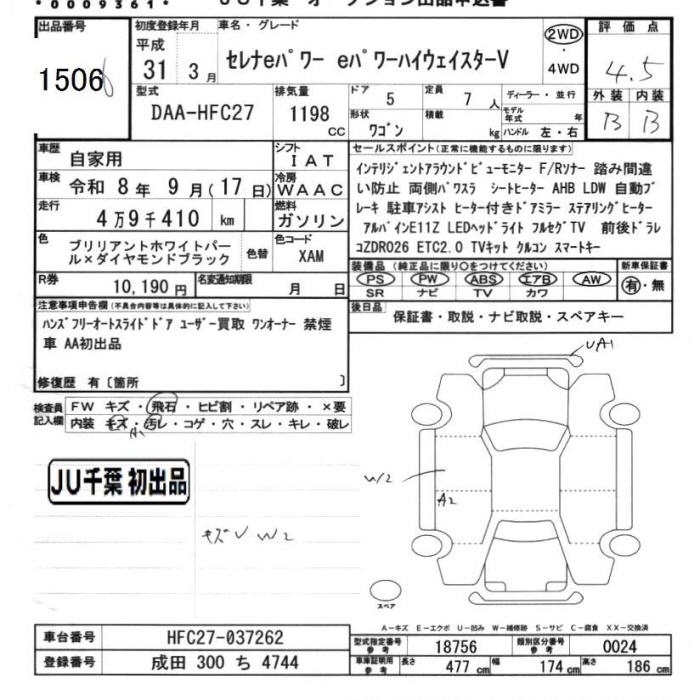 *0009361*
JU千葉 オークション出品申込書
出品番号
1506
初度登録年月
平成
31 3月
車名・グレード
セレナeパワー eパワーハイウェイスターV
2WD
4WD
評価点
4.5
外装 内装
B B
型式
DAA-HFC27
排気量
1198
CC
ドア 5
定員 7 人
ディーラー・並行
形状
ワゴン
積載
kg
モデル年式
年
ハンドル 左・右
車歴
自家用
シフト
IAT
車検
令和 8年 9月(17日)
冷房
WAAC
走行
4万9千410 km
燃料
ガソリン
色
ブリリアントホワイトパール×ダイヤモンドブラック
色替
色コード
XAM
R券
10,190円
名変通知期限
月 日
セールスポイント(正常に機能するものに限ります)
インテリジェントアラウンドビューモニター F/Rソナー 踏み間違
い防止 両側パワスラ シートヒーター AHB LDW 自動ブ
レーキ 駐車アシスト ヒーター付きドアミラー ステアリングヒーター
アルパインE11Z LEDヘッドライト フルセグTV 前後ドラレ
コZDR026 ETC2.0 TVキット クルコン スマートキー
装備品(純正品に限り○をつけてください)
PS PW ABS エアB AW
SR ナビ TV カワ
新車保証書
有・無
後日品
保証書・取説・ナビ取説・スペアキー
注意事項申告欄(不具合内容等は具体的に記入して下さい)
ハンズフリーオートスライドドア ユーザー買取 ワンオーナー 禁煙
車 AA初出品
修復歴 有〔箇所 〕
検査員記入欄
FW キズ・飛石・ヒビ割・リペア跡・×要
内装 キズ・汚レ・コゲ・穴・スレ・キレ・破レ
A1
JU千葉 初出品
キズV W2
UA1
W2
A2
スペア
A―キズ E―エクボ U―凹み W―補修跡 S―サビ C―腐食 XX―交換済
車台番号
HFC27-037262
登録番号
成田 300 ち 4744
型式指定番号
参考
18756
類別区分番号
参考
0024
車庫証明用
参考
長さ 477 cm
幅 174 cm
高さ 186 cm